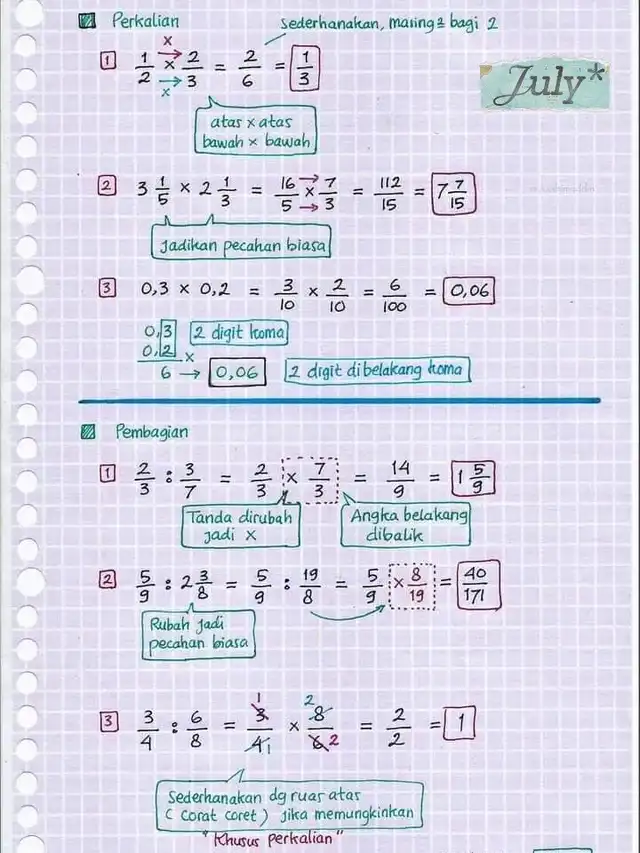 Perkalian
sederhanakan, masing2 bagi 2
1 1/2 × 2/3 = 2/6 = 1/3
× ×
July*
atas × atas
bawah × bawah
2 3 1/5 × 2 1/3 = 16/5 × 7/3 = 112/15 = 7 7/15
Jadikan pecahan biasa
3 0,3 × 0,2 = 3/10 × 2/10 = 6/100 = 0,06
0,3 2 digit koma
0,2 ×
6 → 0,06 2 digit dibelakang koma
Pembagian
1 2/3 : 3/7 = 2/3 × 7/3 = 14/9 = 1 5/9
Tanda dirubah
jadi ×
Angka belakang
dibalik
2 5/9 : 2 3/8 = 5/9 : 19/8 = 5/9 × 8/19 = 40/171
Rubah jadi
pecahan biasa
3 3/4 : 6/8 = 3/4 × 8/6 = 2/2 = 1
1 1 2 2
Sederhanakan dg ruas atas
(corat coret) jika memungkinkan
"Khusus perkalian"